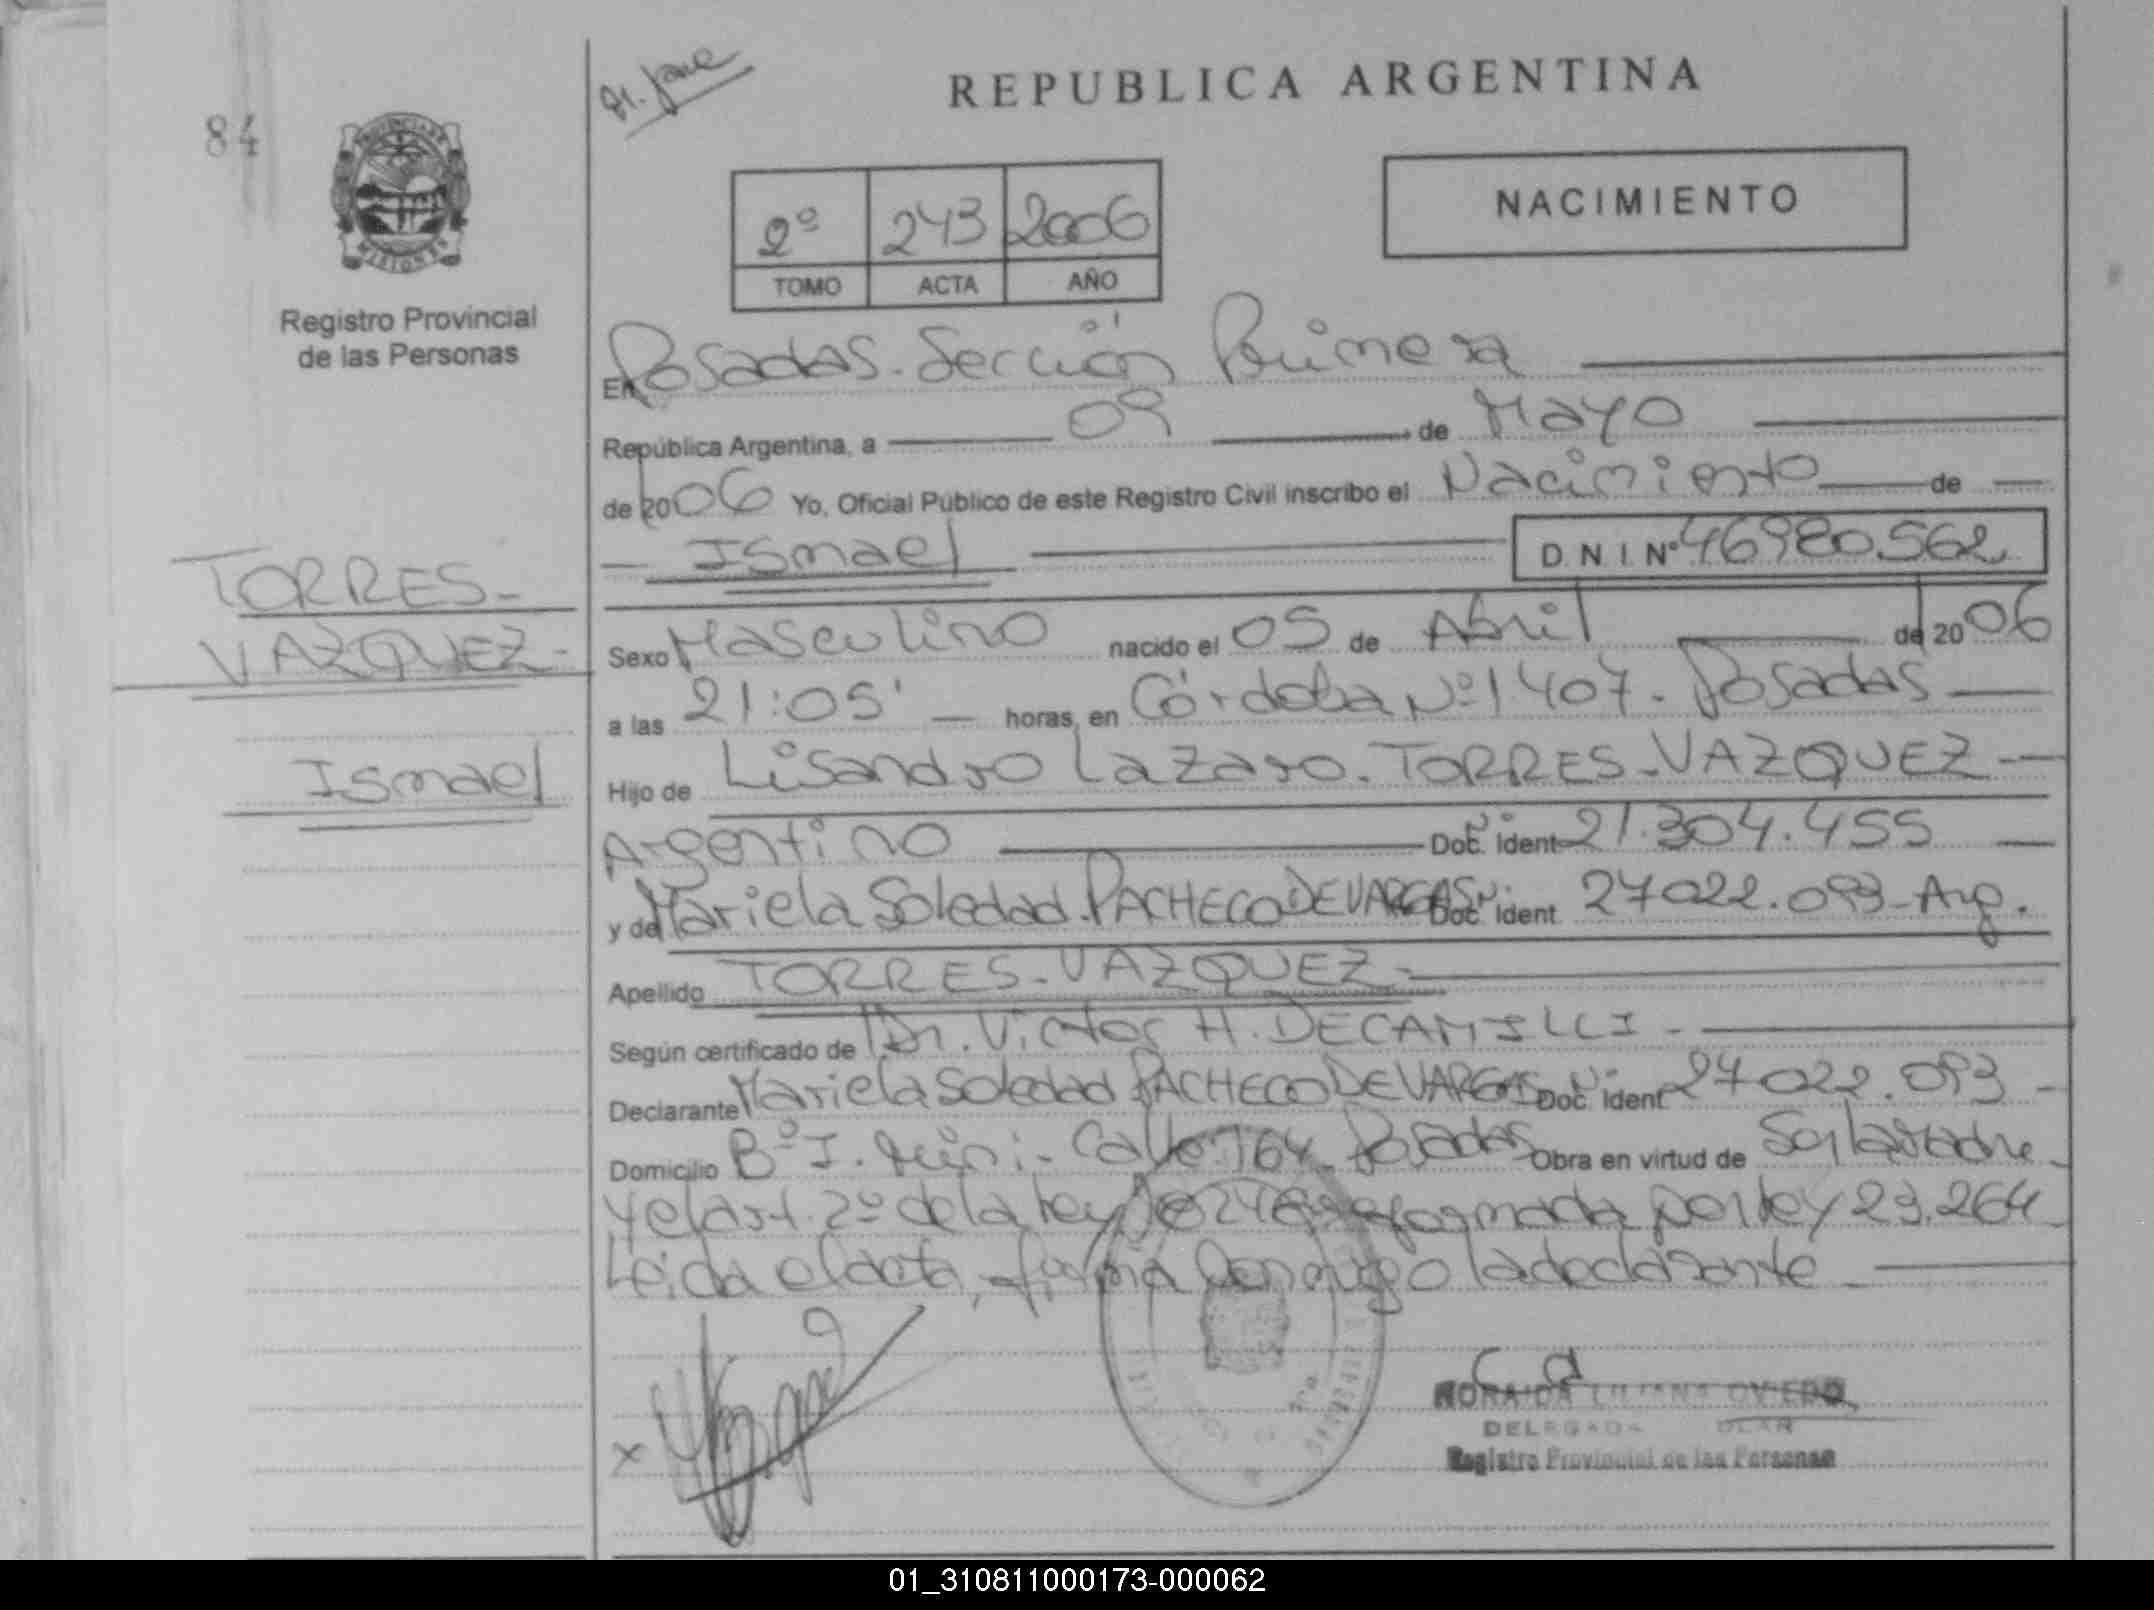 84
REPUBLICA ARGENTINA
NACIMIENTO
2º 243 2006
TOMO ACTA AÑO
PROVINCIA DE
MISIONES
Registro Provincial
de las Personas
En Posadas. Sección Primera
República Argentina, a 09 de Mayo
de 2006 Yo, Oficial Público de este Registro Civil inscribo el Nacimiento de
Ismael D.N.I. Nº 46980.562
TORRES-
VAZQUEZ-
Ismael
Sexo Masculino nacido el 05 de Abril de 2006
a las 21:05' horas, en Córdoba Nº 1407. Posadas
Hijo de Lisandro Lazaro. TORRES-VAZQUEZ
Argentino Doc. Ident 21.304.455
y de Mariela Soledad. PACHECO DE VARGAS Doc. Ident 27022.093-Arg.
Apellido TORRES-VAZQUEZ-
Según certificado de Dr. Victor H. DECAMILLI-
Declarante Mariela Soledad PACHECO DE VARGAS Doc. Ident 27022.093-
Domicilio Bº I. - Calle 164. Posadas Obra en virtud de Ser la Madre
y el art. 2º de la Ley reformada por ley 23.264
Leida el acta, firma conmigo la declarante
X
NORAIDA LILIANA OVIEDO
DELEGADA
Registro Provincial de las Personas
01_310811000173-000062